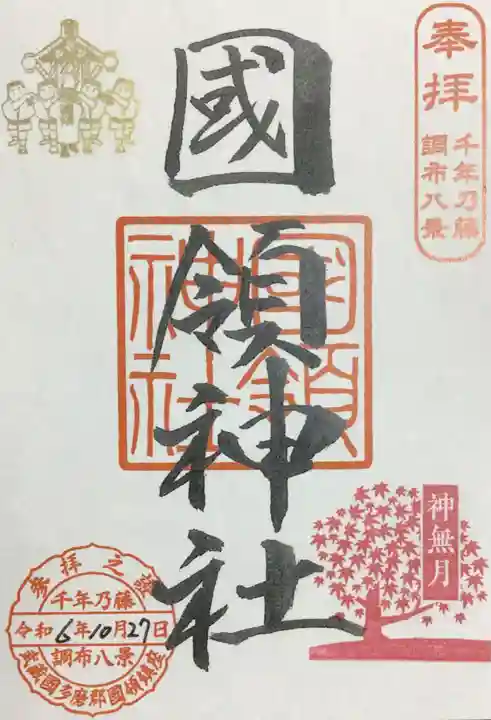 奉拝
千年乃藤
調布八景
國領神社
國領
神社
神無月
奉拝之証
千年乃藤
令和6年10月27日
調布八景
武蔵國多磨郡國領鎮座